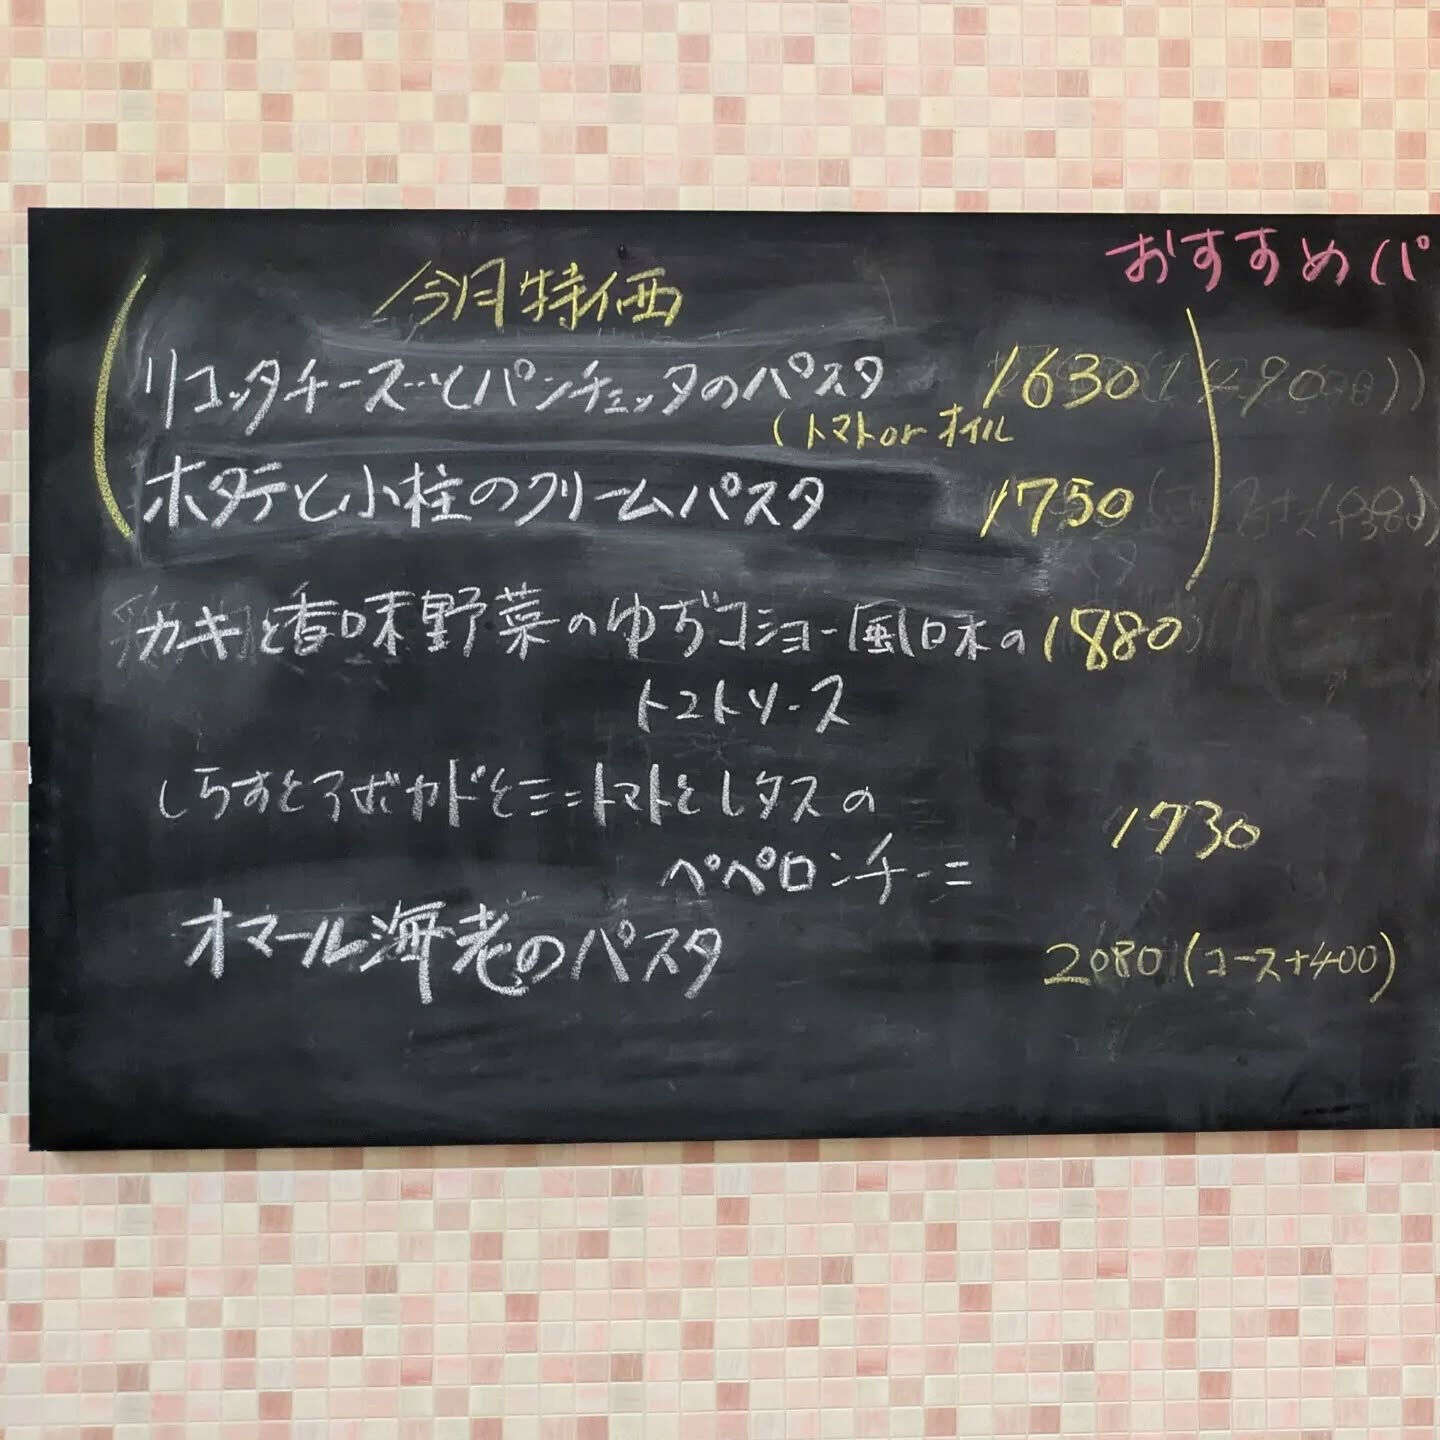 おすすめパ
今月特価
リコッタチーズとパンチェッタのパスタ 1630
(トマトorオイル
ホタテと小柱のクリームパスタ 1750
カキと香味野菜のゆずコショー風味の 1880
トマトソース
しらすとアボカドとミニトマトとレタスの
ペペロンチーニ 1730
オマール海老のパスタ 2080(コース+400)